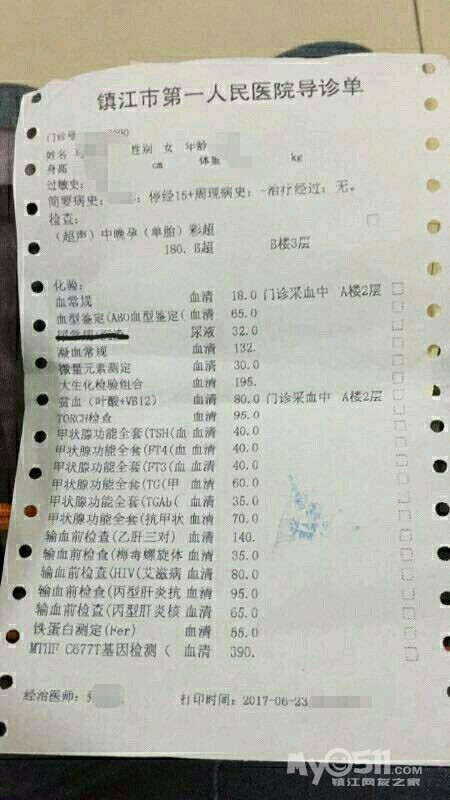 镇江市第一人民医院导诊单
门诊号
姓名 性别 女 年龄
身高 cm 体重 kg
过敏史:
简要病史: ; 停经15+周现病史: -治疗经过: 无。
检查:
(超声)中晚孕(单胎)彩超
180. B超 B楼3层
化验:
血常规 血清 18.0 门诊采血中 A楼2层
血型鉴定(ABO血型鉴定( 血清 65.0
尿液 32.0
凝血常规 血清 132.
微量元素测定 血清 30.0
大生化检验组合 血清 195.
贫血(叶酸+VB12) 血清 80.0 门诊采血中 A楼2层
TORCH检查 血清 95.0
甲状腺功能全套(TSH(血 血清 40.0
甲状腺功能全套(FT4(血 血清 40.0
甲状腺功能全套(FT3(血 血清 40.0
甲状腺功能全套(TG(甲 血清 60.0
甲状腺功能全套(TGAb( 血清 35.0
甲状腺功能全套(抗甲状 血清 70.0
输血前检查(乙肝三对) 血清 140.
输血前检查(梅毒螺旋体 血清 35.0
输血前检查(HIV(艾滋病 血清 80.0
输血前检查(丙型肝炎抗 血清 95.0
输血前检查(丙型肝炎核 血清 65.0
铁蛋白测定(Fer) 血清 55.0
MTHF C677T基因检测( 血清 390.
经治医师: 打印时间: 2017-06-23
My0511.com
镇江网友之家